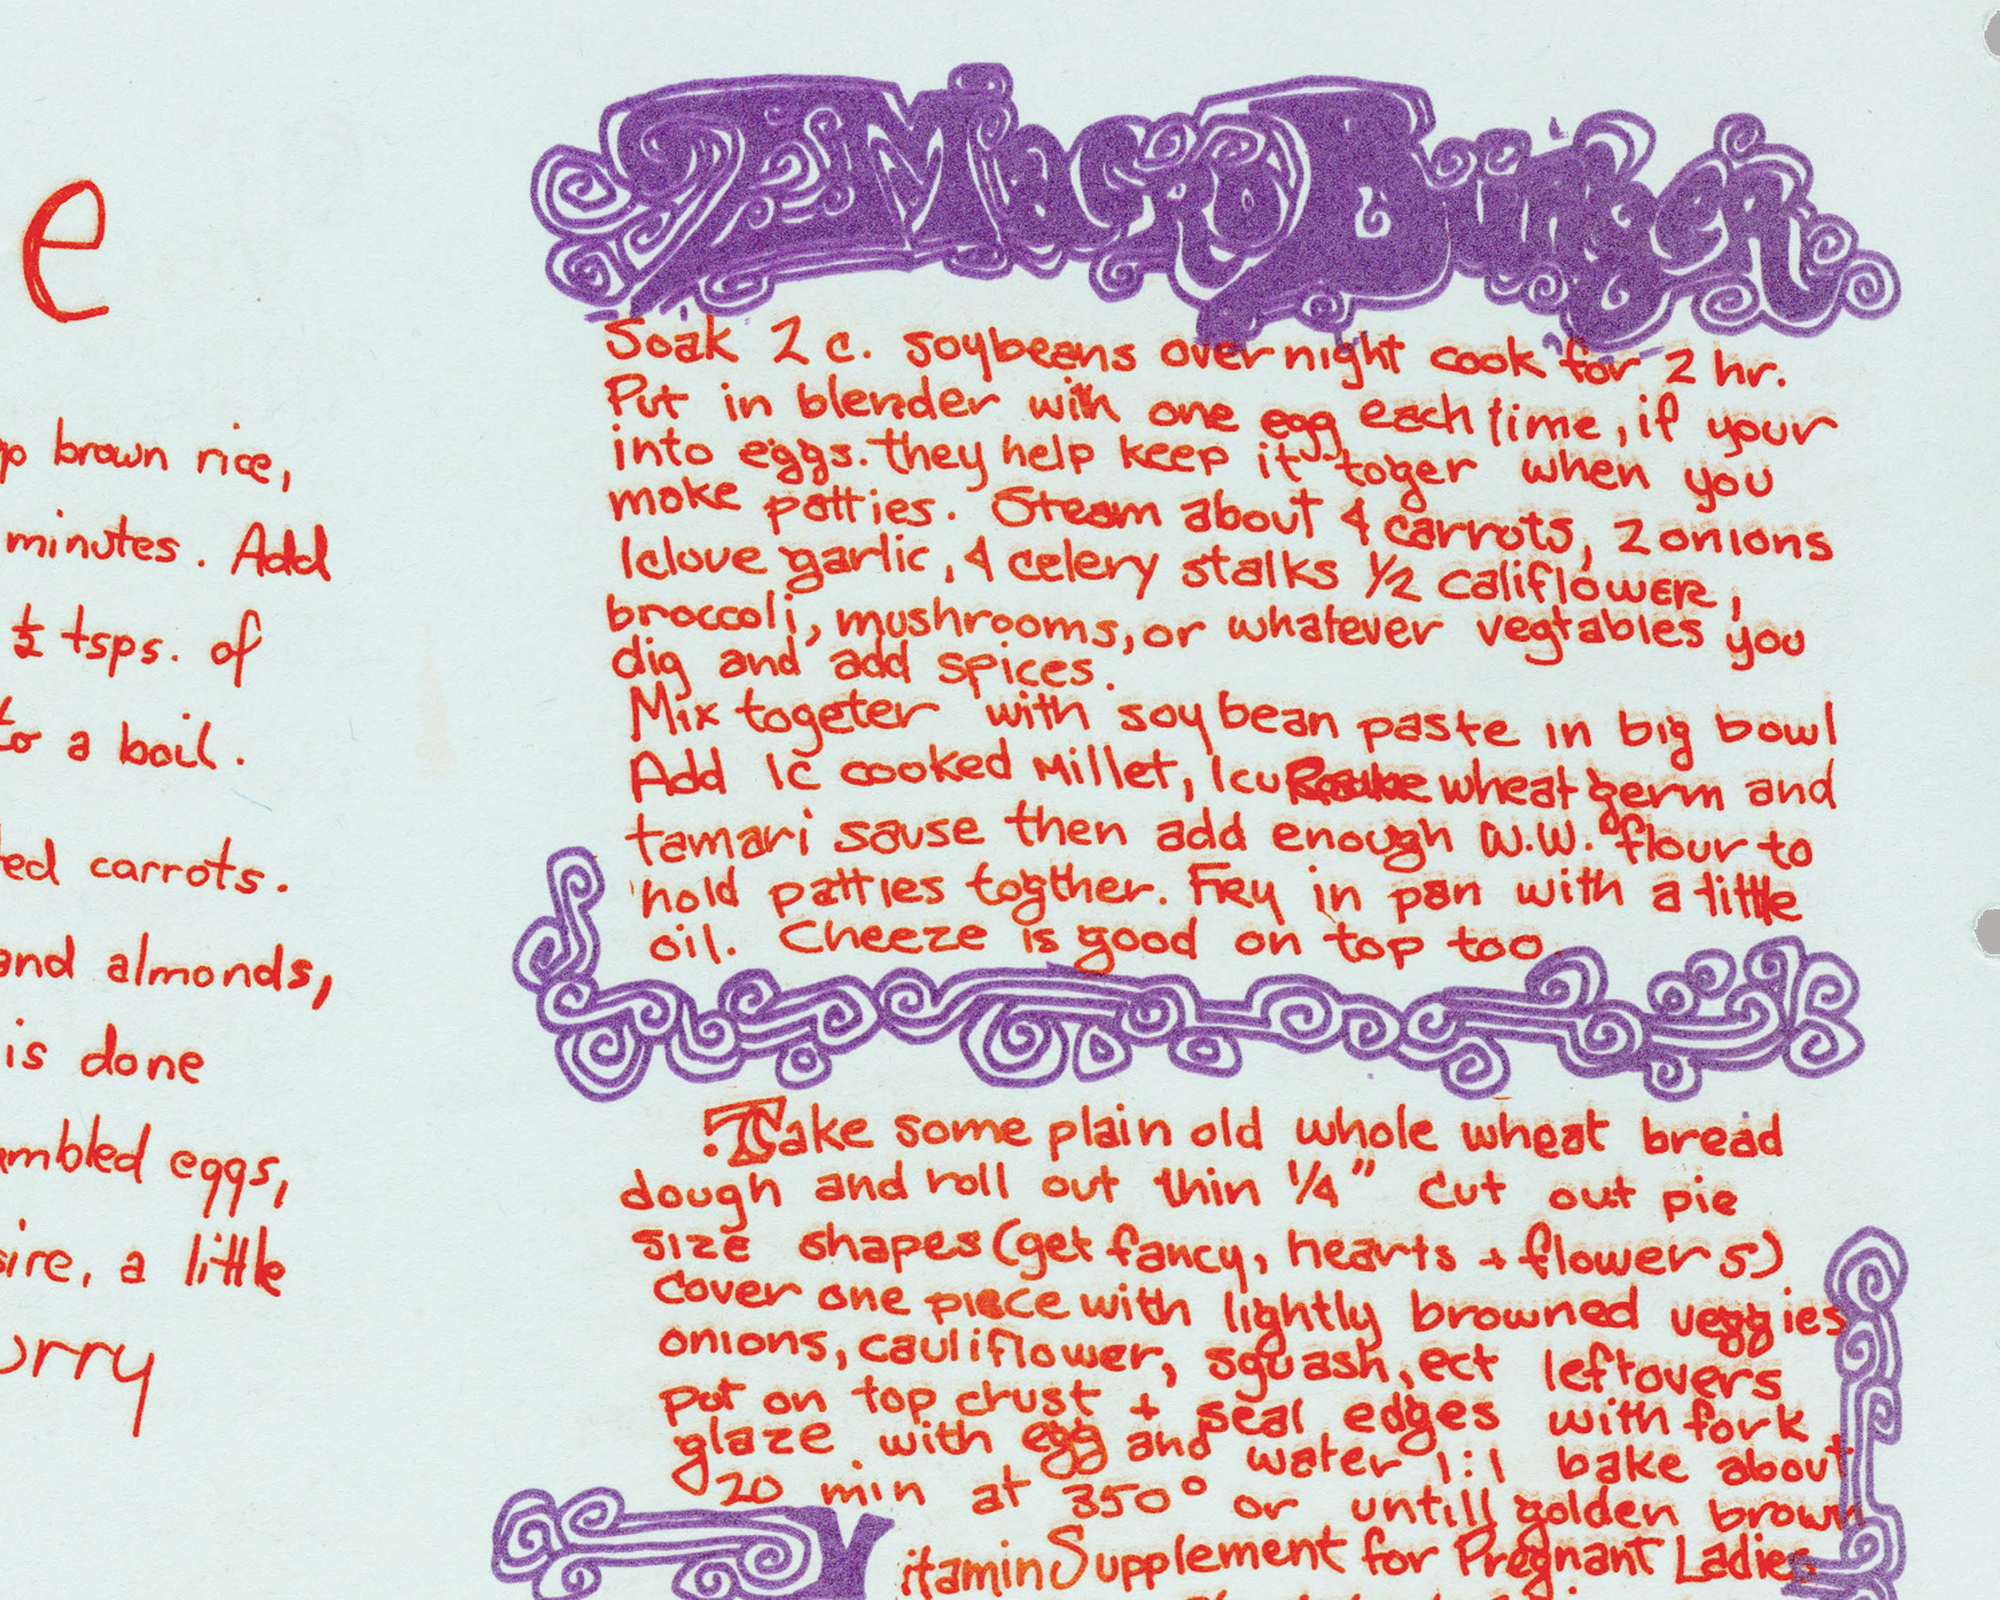 e
brown rice,
minutes. Add
½ tsps. of
to a boil.
carrots.
and almonds,
is done
eggs,
a little
Macro Burger
Soak 2 c. soybeans overnight cook for 2 hr.
Put in blender with one egg each time, if your
into eggs. they help keep it toger when you
moke patties. Steam about 4 carrots, 2 onions
1clove garlic, 4 celery stalks ½ califlowER,
broccoli, mushrooms, or whatever vegtables you
dig and add spices.
Mix togeter with soybean paste in big bowl
Add 1c cooked Millet, 1cu wheat germ and
tamari sause then add enough W.W. flour to
hold patties togther. FRy in pan with a little
oil. Cheeze is good on top too.
Take some plain old whole wheat bread
dough and roll out thin ¼" Cut out pie
size shapes (get fancy, hearts + flowers)
cover one piece with lightly browned veggies
onions, cauliflower, squash, ect leftovers
put on top crust + seal edges with fork
glaze with egg and water 1:1 bake about
20 min at 350° or untill golden brown
Vitamin Supplement for Pregnant Ladies